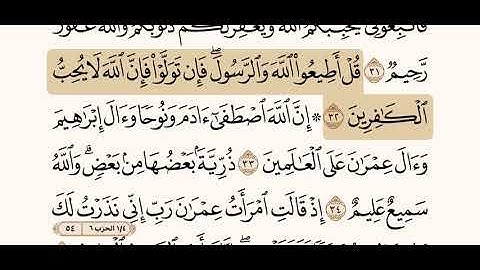 فَاتَّبِعُونِي يُحْبِبْكُمُ اللَّهُ وَيَغْفِرْ لَكُمْ ذُنُوبَكُمْ وَاللَّهُ غَفُورٌ
رَّحِيمٌ ٣١ قُلْ أَطِيعُوا۟ ٱللَّهَ وَٱلرَّسُولَ ۖ فَإِن تَوَلَّوْا۟ فَإِنَّ ٱللَّهَ لَا يُحِبُّ
ٱلْكَـٰفِرِينَ ٣٢ ۞ إِنَّ ٱللَّهَ ٱصْطَفَىٰٓ ءَادَمَ وَنُوحًا وَءَالَ إِبْرَٰهِيمَ
وَءَالَ عِمْرَٰنَ عَلَى ٱلْعَـٰلَمِينَ ٣٣ ذُرِّيَّةًۢ بَعْضُهَا مِنۢ بَعْضٍ ۗ وَٱللَّهُ
سَمِيعٌ عَلِيمٌ ٣٤ إِذْ قَالَتِ ٱمْرَأَتُ عِمْرَٰنَ رَبِّ إِنِّى نَذَرْتُ لَكَ
٥٤ ١/٤ الحزب ٦